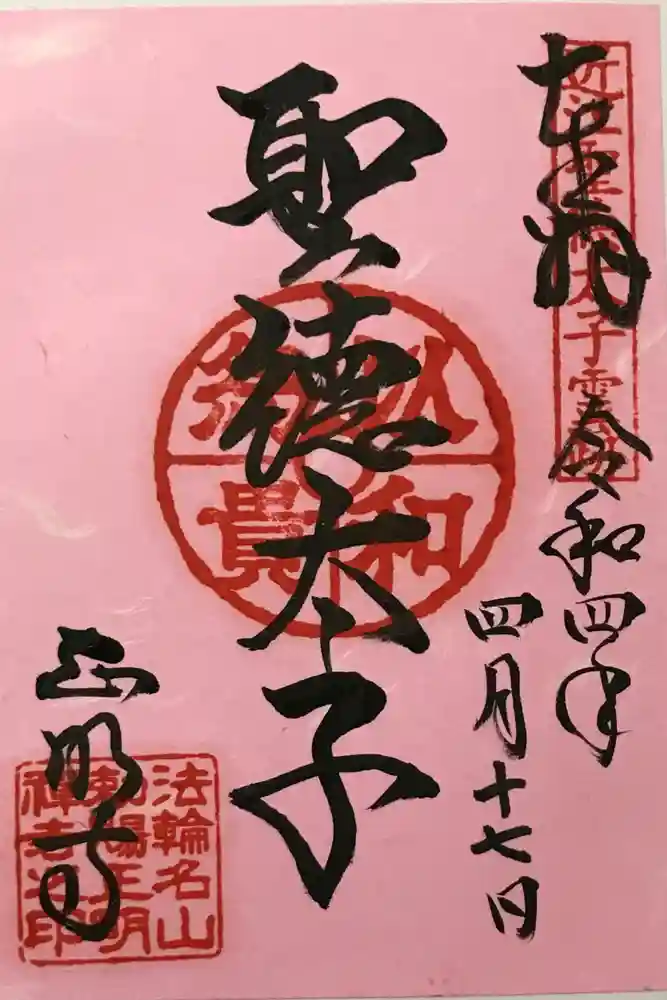 近江聖徳太子霊跡
奉拝
令和四年
四月十七日
聖徳太子
以和為貴
正明寺
法輪名山
勅賜正明